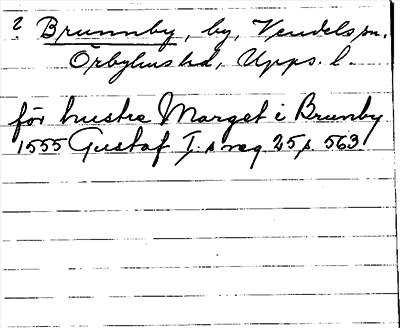 ? Brunnby, by, Vendels sn.
Örbyhus hd, Upps. l.
för hustrv Marget i Brunby
1555 Gustaf I:s reg 25 s. 563